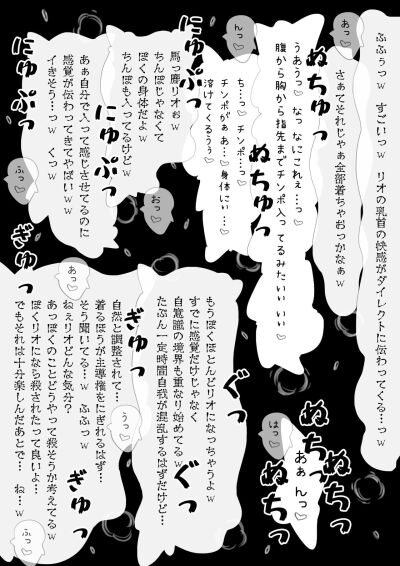 ふふぅっｗ　すごいっｗ　リオの乳首の快感がダイレクトに伝わってくる…っｗ
さぁてそれじゃぁ全部着ちゃおっかなぁｗ
あっ♡
ぬちゅっ
うあうっ♡　なっ　なにこれぇ…っ♡
腹から胸から指先までチンポ入ってるみたいいいい♡
ぬちゅっ
んっ♡
ち…っ♡　チンポ…っ♡
チンポがぁあ…♡　身体にぃ…♡
溶けてくるうぅ♡
にゅぷっ
馬っ鹿リオぉｗ
ちんぽじゃなくて
ぼくの身体だよｗ
ちんぽも入ってるけどｗ
おっ♡
にゅぷっ
にゅぷっ
あぁ自分で入って感じさせてるのに
感覚が伝わってきてやばいいｗ
イきそう…っｗ　くっｗ
ふっ♡
ぬちゅっ
ぬちゅっ
ぬちゅっ
はっ♡
あぁんっ♡
もうぼくほとんどリオになっちゃうよｗ
すでに感覚だけじゃなく
自意識の境界も重なり始めてるｗ
たぶん一定時間自我が混乱するはずだけど…
ぐっ
ぐっ
うっ♡
自然と調整されて…
着るほうが主導権をにぎれるはず…
そう聞いてる…ｗ　ふふっｗ
ねぇリオどんな気分？
あっぼくのことどうやって殺そうか考えてるｗ
ぼくリオになら殺されたって良いよ…
でもそれは十分楽しんだあとで…　ね…ｗ
あっ♡
ぎゅっ
ぎゅっ
ふっ♡